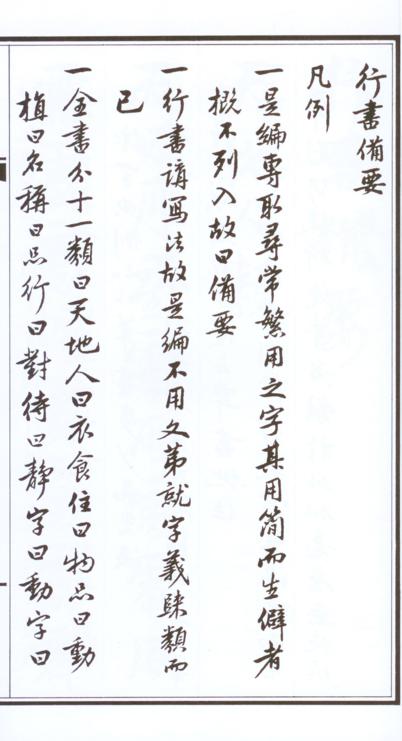 行書備要
凡例
一是編專取尋常繁用之字其用簡而生僻者
概不列入故曰備要
一行書講寫法故是編不用文第就字義隸類而
已
一全書分十一類曰天地人曰衣食住曰物品曰動
植曰名稱曰品行曰對待曰靜字曰動字曰